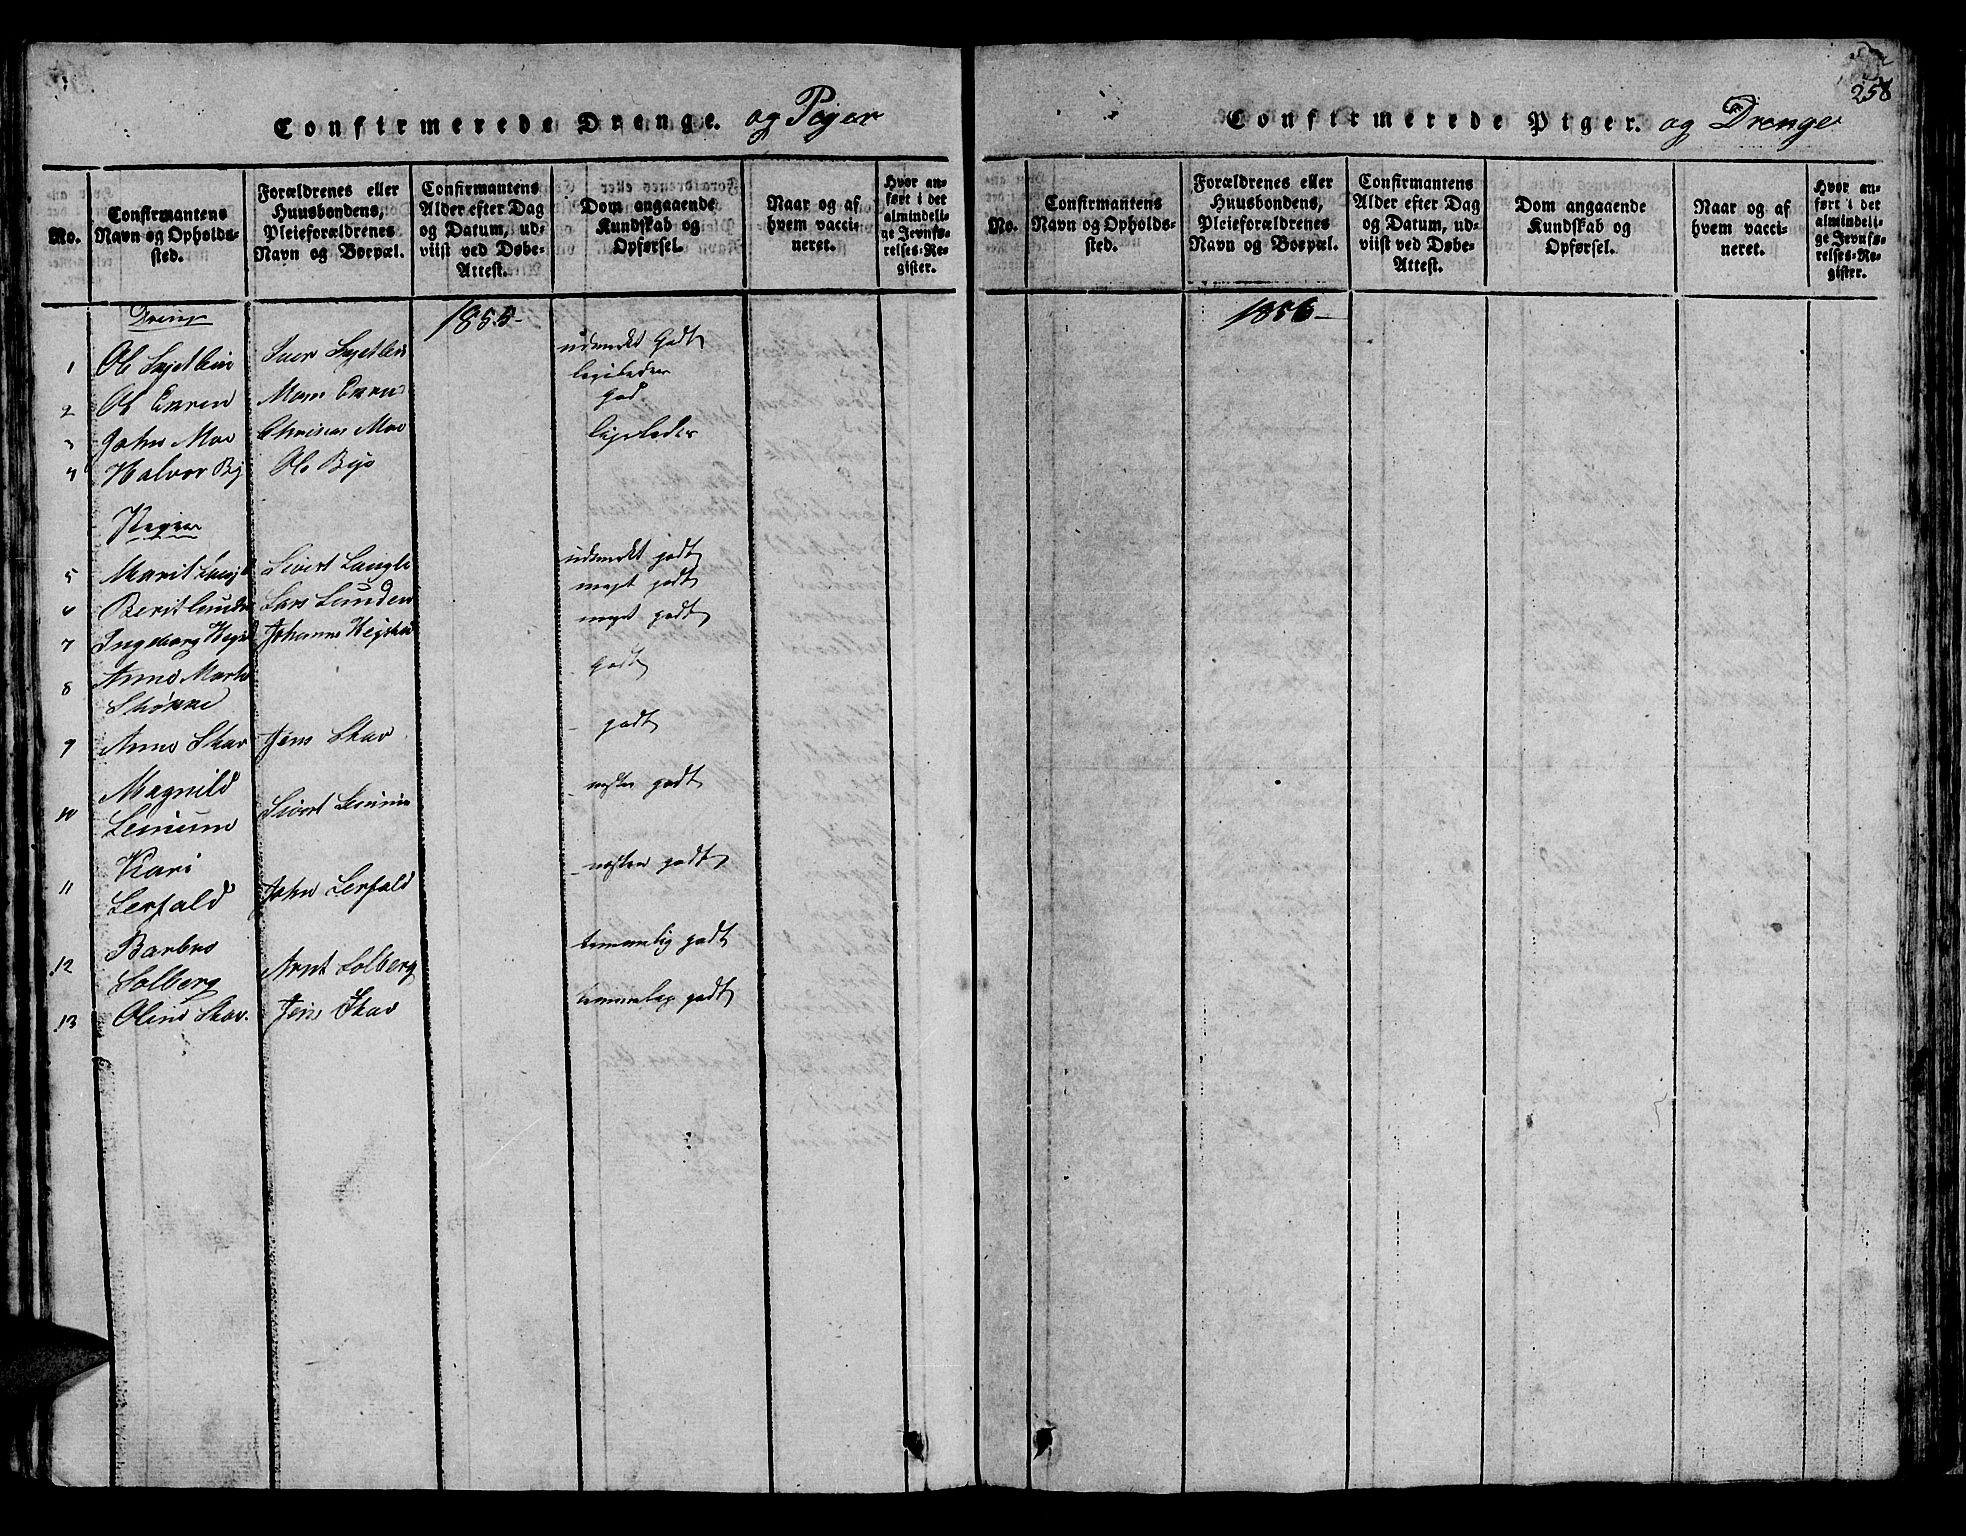 258
Confirmerede Drenge. og Piger
No.
Confirmantens
Navn og Opholds-
sted.
Forældrenes eller
Huusbondens,
Pleieforældrenes
Navn og Borpæl.
Confirmantens
Alder efter Dag
og Datum, ud-
viist ved Døbe-
Attest.
Dom angaaende
Kundskab og
Opførsel.
Naar og af
hvem vacci-
neret.
Hvor an-
ført i det
almindeli-
ge Jevnfø-
relses-Re-
gister.
Drenge 1855-
1 Ole Iver udmerket Godt
2 Ole Mons god
3 John Moe Moe ligeledes
4 Halvor By Ole Bye
Piger
5 Marit Sivert Langli udmerket godt
6 Berit Lunden Lars Lunden meget godt
7 Ingeborg Johannes meget godt
8 Anne Marta godt
9 Anne Skav Jens Skav - godt
10 Magnild
Lenium Sivert Lenium - næsten godt
11 Kari
Lerfald John Lerfald - næsten godt
12 Barbro
Solberg Arnt Solberg temmelig godt
13 Oline Skav. Jens Skav temmelig godt
Confirmerede Piger. og Drenge
No.
Confirmantens
Navn og Opholds-
sted.
Forældrenes eller
Huusbondens,
Pleieforældrenes
Navn og Borpæl.
Confirmantens
Alder efter Dag
og Datum, ud-
viist ved Døbe-
Attest.
Dom angaaende
Kundskab og
Opførsel.
Naar og af
hvem vacci-
neret.
Hvor an-
ført i det
almindeli-
ge Jevnfø-
relses-Re-
gister.
1856-